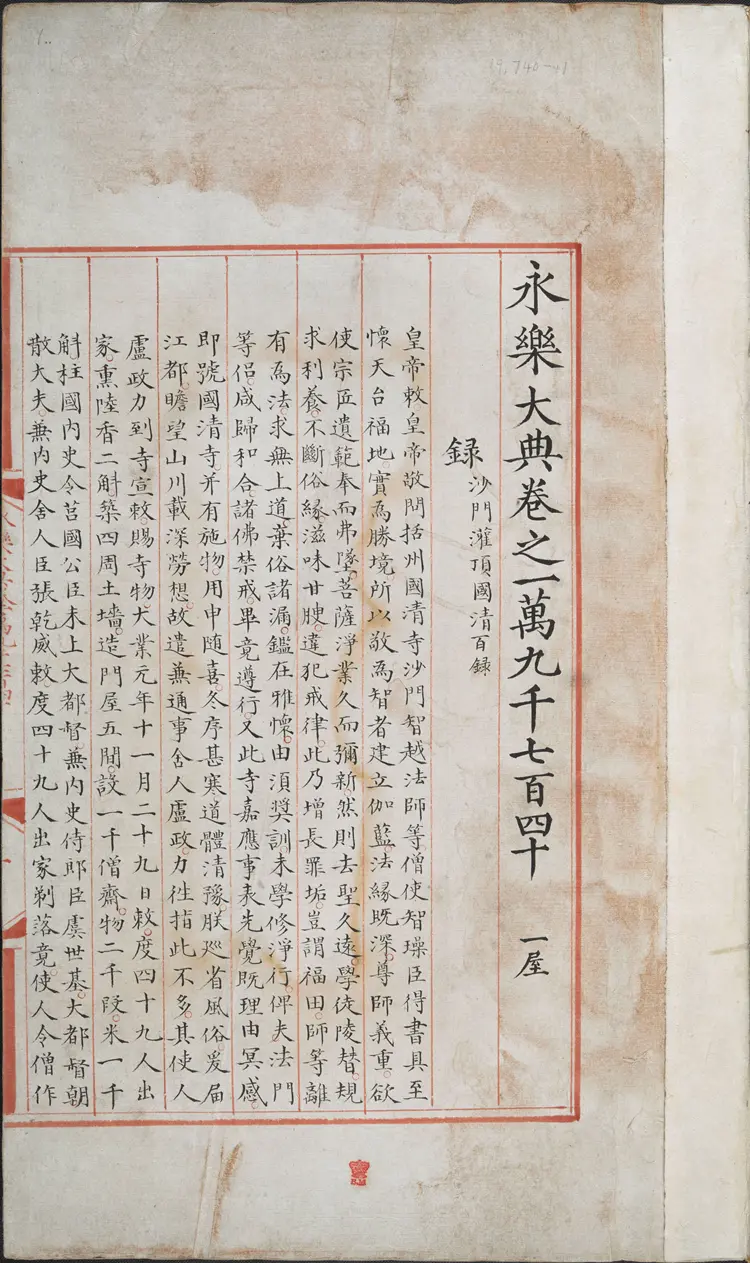 永樂大典卷之一萬九千七百四十 一屋
録 沙門灌頂國清百録
皇帝敕皇帝敬問括州國清寺沙門智越法師等僧使智璪臣得書具至
懷天台福地實為勝境所以敬為智者建立伽藍法縁既深尊師義重欲
使宗匠遺範奉而弗墜菩薩淨業久而彌新然則去聖久遠學徒陵替規
求利養不斷俗縁滋味甘腴違犯戒律此乃增長罪垢豈謂福田師等離
有為法求無上道葉俗諸漏鑑在雅懷由湏奬訓未學修淨行俾夫法門
等侣咸歸和合諸佛禁戒畢竟遵行又此寺嘉應事表先覺既理由冥感
即號國清寺并有施物用申随喜冬序甚寒道體清豫朕廵省風俗爰屆
江都瞻望山川載深勞想故遣兼通事舍人盧政力徃指此不多其使人
盧政力到寺宣敕賜寺物大業元年十一月二十九日敕度四十九人出
家熏陸香二斛築四周土墻造門屋五間設一千僧齋物二千段米一千
斛柱國内史令莒國公臣未上大都督兼内史侍郎臣虞世基大都督朝
散大夫兼内史舍人臣張乾威敕度四十九人出家剃落竟使人令僧作
19,740-41